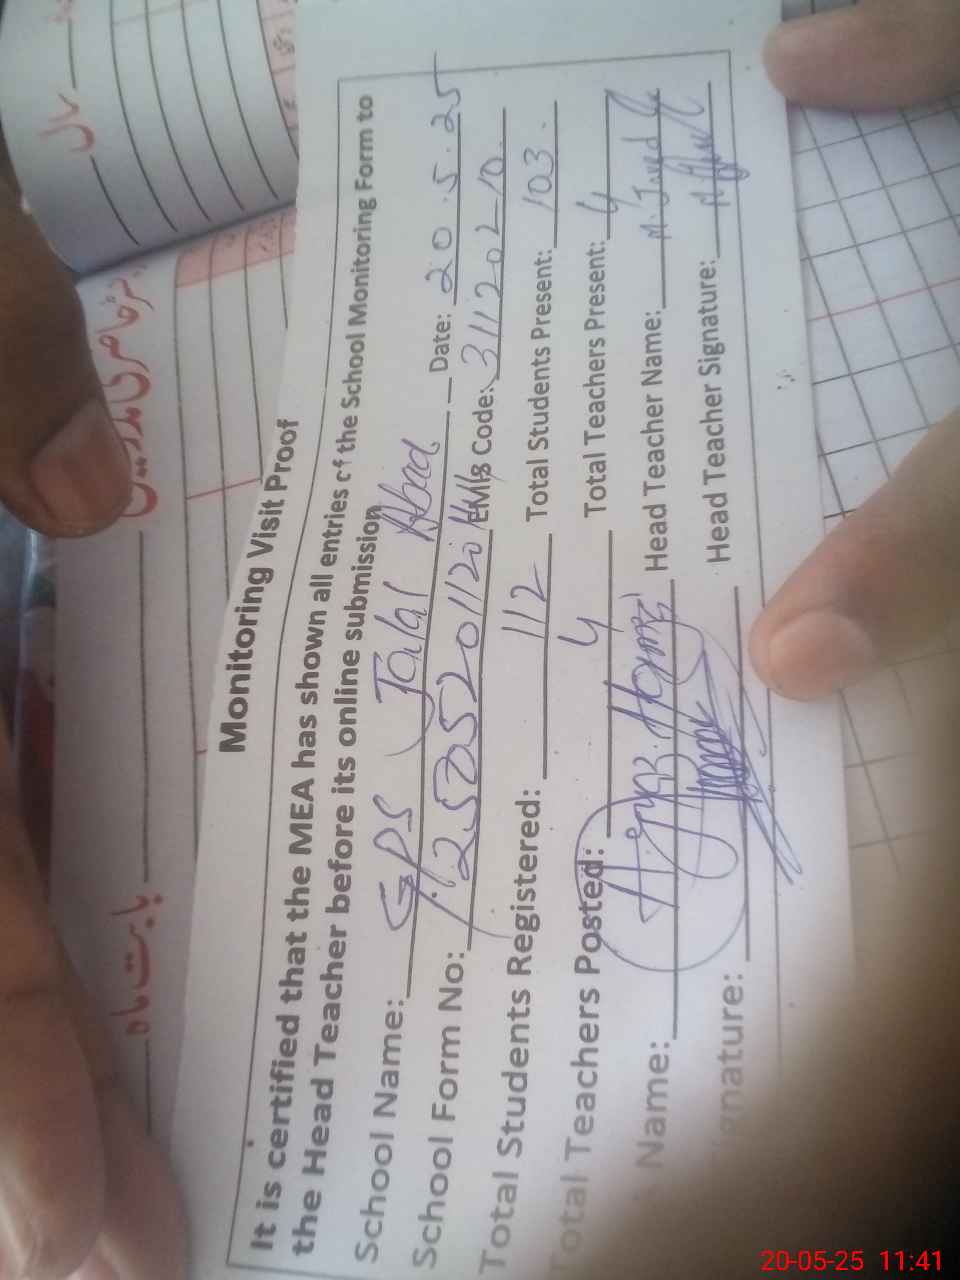 سال
مدرسین
بابت ماہ
Monitoring Visit Proof
It is certified that the MEA has shown all entries of the School Monitoring Form to
the Head Teacher before its online submission
School Name: GPS Jalal Abad Date: 20.5.25
School Form No: EMIS Code: 31120210
Total Students Registered: 112 Total Students Present: 103
Total Teachers Posted: 4 Total Teachers Present: 4
Name: Head Teacher Name: M. Javed
Signature: Head Teacher Signature:
20-05-25 11:41